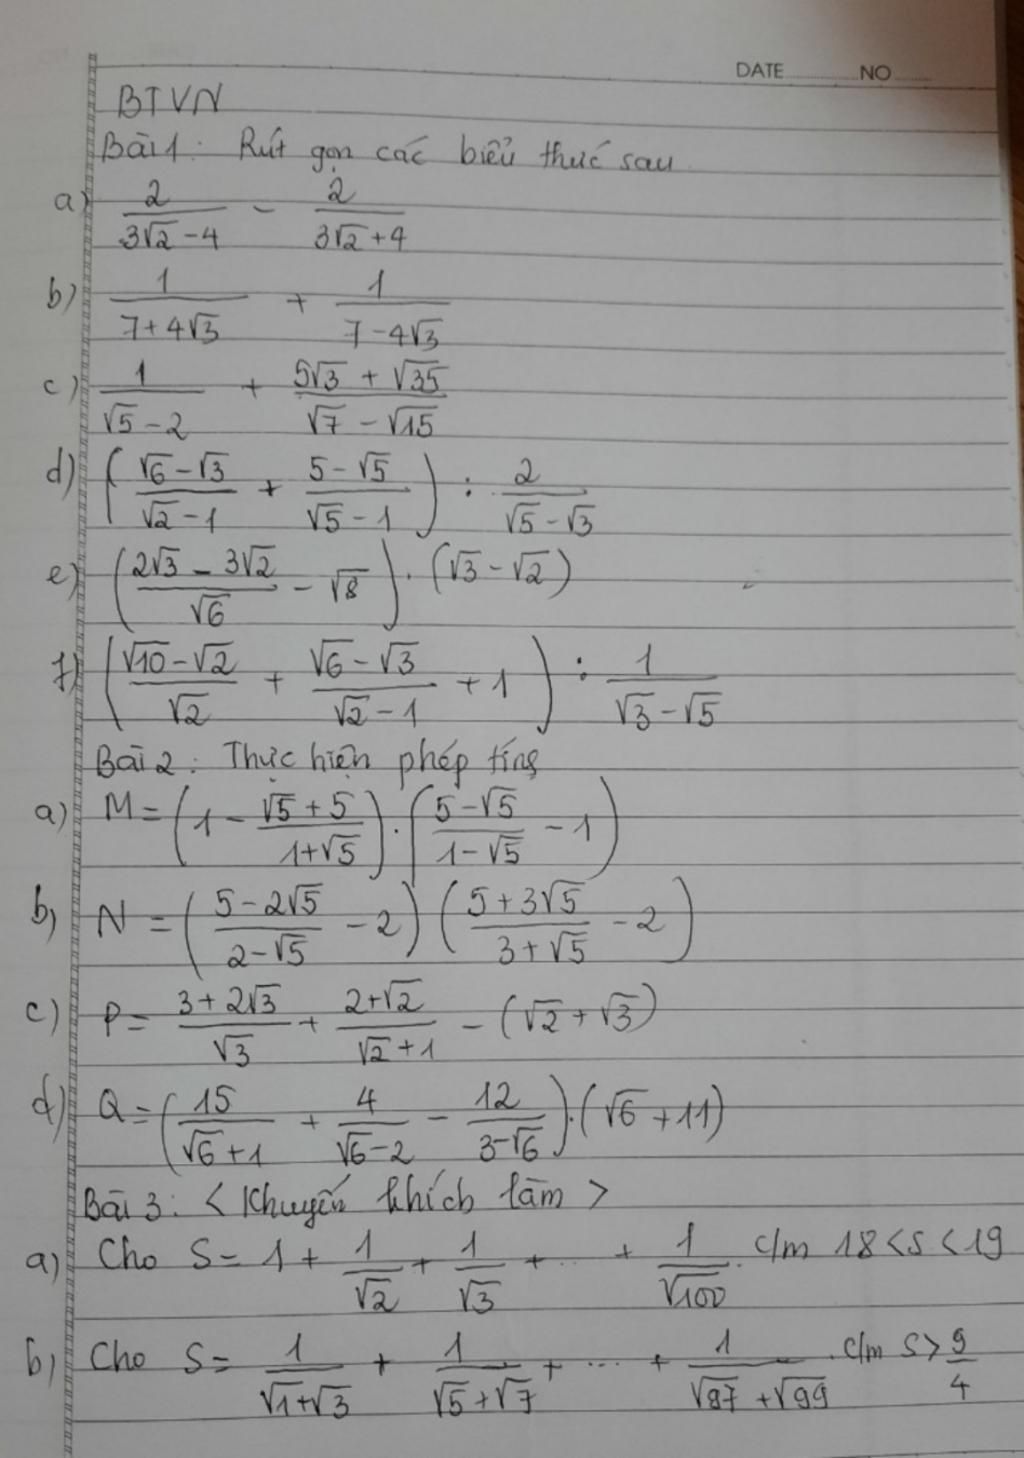 DATE NO
BTVN
Bài 1: Rút gọn các biểu thức sau
a) 2/(3√2 - 4) - 2/(3√2 + 4)
b) 1/(7 + 4√3) + 1/(7 - 4√3)
c) 1/(√5 - 2) + (5√3 + √35)/(√7 - √15)
d) ((√6 - √3)/(√2 - 1) + (5 - √5)/(√5 - 1)) : 2/(√5 - √3)
e) ((2√3 - 3√2)/√6 - √8) . (√3 - √2)
f) ((√10 - √2)/√2 + (√6 - √3)/(√2 - 1) + 1) : 1/(√3 - √5)
Bài 2: Thực hiện phép tính
a) M = (1 - (√5 + 5)/(1 + √5)) . ((5 - √5)/(1 - √5) - 1)
b) N = ((5 - 2√5)/(2 - √5) - 2) ((5 + 3√5)/(3 + √5) - 2)
c) P = (3 + 2√3)/√3 + (2 + √2)/(√2 + 1) - (√2 + √3)
d) Q = (15/(√6 + 1) + 4/(√6 - 2) - 12/(3 - √6)) . (√6 + 11)
Bài 3: < Khuyến khích làm >
a) Cho S = 1 + 1/√2 + 1/√3 + ... + 1/√100. c/m 18 < S < 19
b) Cho S = 1/(√1 + √3) + 1/(√5 + √7) + ... + 1/(√97 + √99). c/m S > 9/4